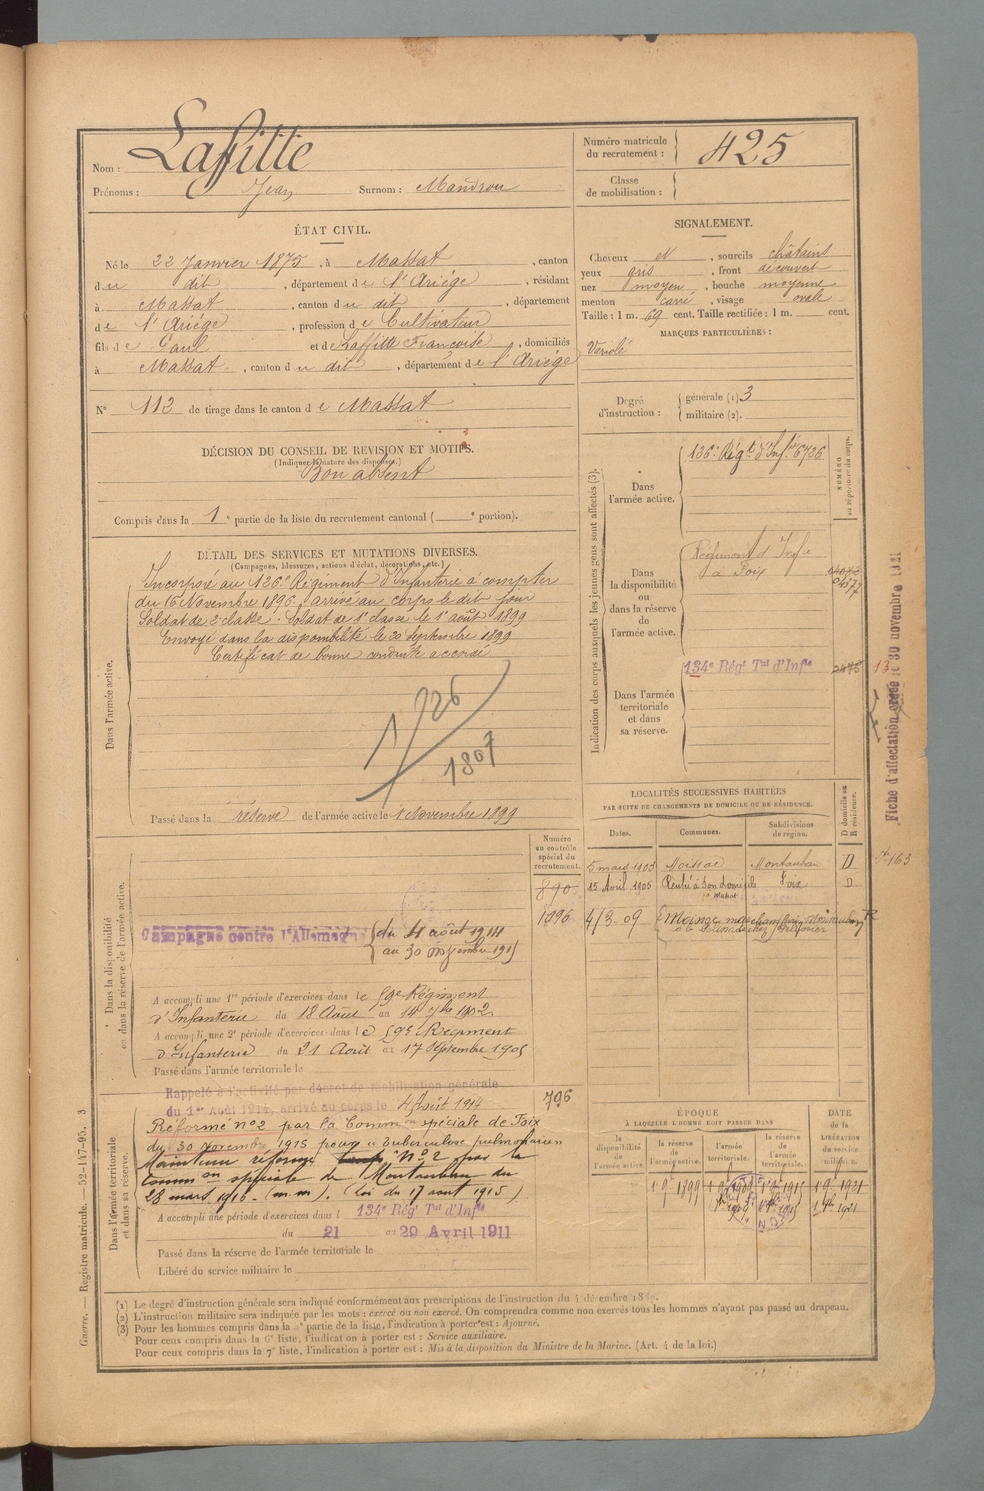 Nom : Laffitte
Prénoms : Jean Surnom : Mandrou
Numéro matricule du recrutement : 425
Classe de mobilisation :
ÉTAT CIVIL.
Né le 22 Janvier 1875, à Massat, canton
du dit, département de l'Ariége, résidant
à Massat, canton du dit, département
de l'Ariége, profession de Cultivateur
fils de Paul et de Laffitte Françoise, domiciliés
à Massat, canton du dit, département de l'Ariége
N° 112 de tirage dans le canton de Massat
SIGNALEMENT.
Cheveux et, sourcils châtains
yeux gris, front découvert
nez moyen, bouche moyenne
menton carré, visage ovale
Taille : 1 m. 69 cent. Taille rectifiée : 1 m. cent.
MARQUES PARTICULIÈRES :
Variolé
Degré d'instruction : générale (1) 3
militaire (2).
DÉCISION DU CONSEIL DE REVISION ET MOTIFS.
(Indiquer la nature des dispenses.)
Bon absent
Compris dans la 1e partie de la liste du recrutement cantonal ( e portion).
DÉTAIL DES SERVICES ET MUTATIONS DIVERSES.
(Campagnes, blessures, actions d'éclat, décorations, etc.)
Dans l'armée active.
Incorporé au 126e Régiment d'Infanterie à compter
du 16 Novembre 1896, arrivé au corps le dit jour
Soldat de 2e classe. Soldat de 1e classe le 1e août 1899
Envoyé dans la disponibilité le 20 Septembre 1899
Certificat de bonne conduite accordé
1807
Passé dans la réserve de l'armée active le 1 Novembre 1899
Indication des corps auxquels les jeunes gens sont affectés (3).
NUMÉRO au répertoire du corps.
Dans l'armée active.
126e Régt d'Infie 6726
Dans la disponibilité ou dans la réserve de l'armée active.
Régiment d'Infie
à Foix
Dans l'armée territoriale et dans sa réserve.
134e Régt Tal d'Infie 2475
13
Fiche d'affectation le 30 novembre 1921
LOCALITÉS SUCCESSIVES HABITÉES
PAR SUITE DE CHANGEMENTS DE DOMICILE OU DE RÉSIDENCE.
Dates. Communes. Subdivisions de région. D domicile ou R résidence.
5 mars 1903 Moissac Montauban D
15 Avril 1905 Rentré à son domicile Massat Foix D
4/3.09 Montauban R
163
Dans la disponibilité ou dans la réserve de l'armée active.
Numéro au contrôle spécial du recrutement.
890
1096
Campagne contre l'Allemagne du 4 août 1914
au 30 Novembre 1915
A accompli une 1re période d'exercices dans le 59e Régiment
d'Infanterie du 18 Août au 14 7bre 1902
A accompli une 2e période d'exercices dans le 59e Régiment
d'Infanterie du 21 Août au 17 Septembre 1905
Passé dans l'armée territoriale le
Dans l'armée territoriale et dans sa réserve.
796
Rappelé à l'activité par décret de mobilisation générale
du 1er Août 1914, arrivé au corps le 4 Août 1914
Réformé n°2 par la Common spéciale de Foix
du 30 Novembre 1915 pour "Tuberculose pulmonaire"
Maintenu réformé N°2 par la
Common spéciale de Montauban du
28 mars 1916. (m.m). (loi du 17 aout 1915)
A accompli une période d'exercices dans l 134e Régt Tal d'Infie
du 21 au 29 Avril 1911
Passé dans la réserve de l'armée territoriale le
Libéré du service militaire le
ÉPOQUE
À LAQUELLE L'HOMME DOIT PASSER DANS
la disponibilité de l'armée active. la réserve de l'armée active. l'armée territoriale. la réserve de l'armée territoriale.
DATE de la LIBÉRATION du service militaire.
1.9.1899 1.9.1909 1.9.1915 1.9.1921
(1) Le degré d'instruction générale sera indiqué conformément aux prescriptions de l'instruction du 4 décembre
(2) L'instruction militaire sera indiquée par les mots : exercé ou non exercé. On comprendra comme non exercés tous les hommes n'ayant pas passé au drapeau.
(3) Pour les hommes compris dans la partie de la liste, l'indication à porter est : Ajourné.
Pour ceux compris dans la 6e liste, l'indication à porter est : Service auxiliaire.
Pour ceux compris dans la 7e liste, l'indication à porter est : Mis à la disposition du Ministre de la Marine. (Art. 4 de la loi.)
Guerre. — Registre matricule. 52-147-95. 3